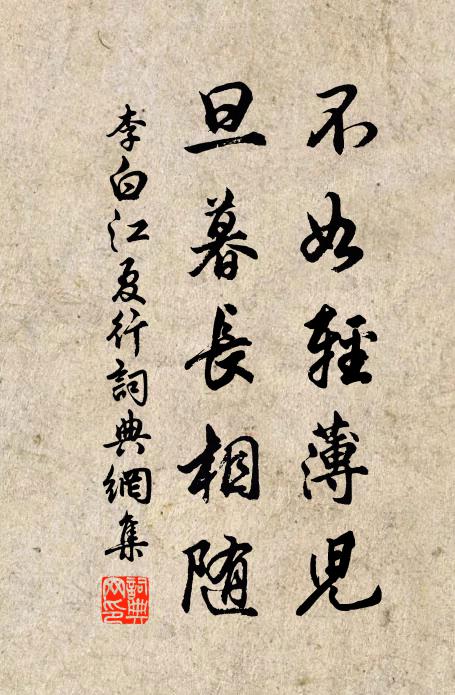 不如輕薄兒
旦暮長相隨
李白江夏行詞典網集
詞典
网印